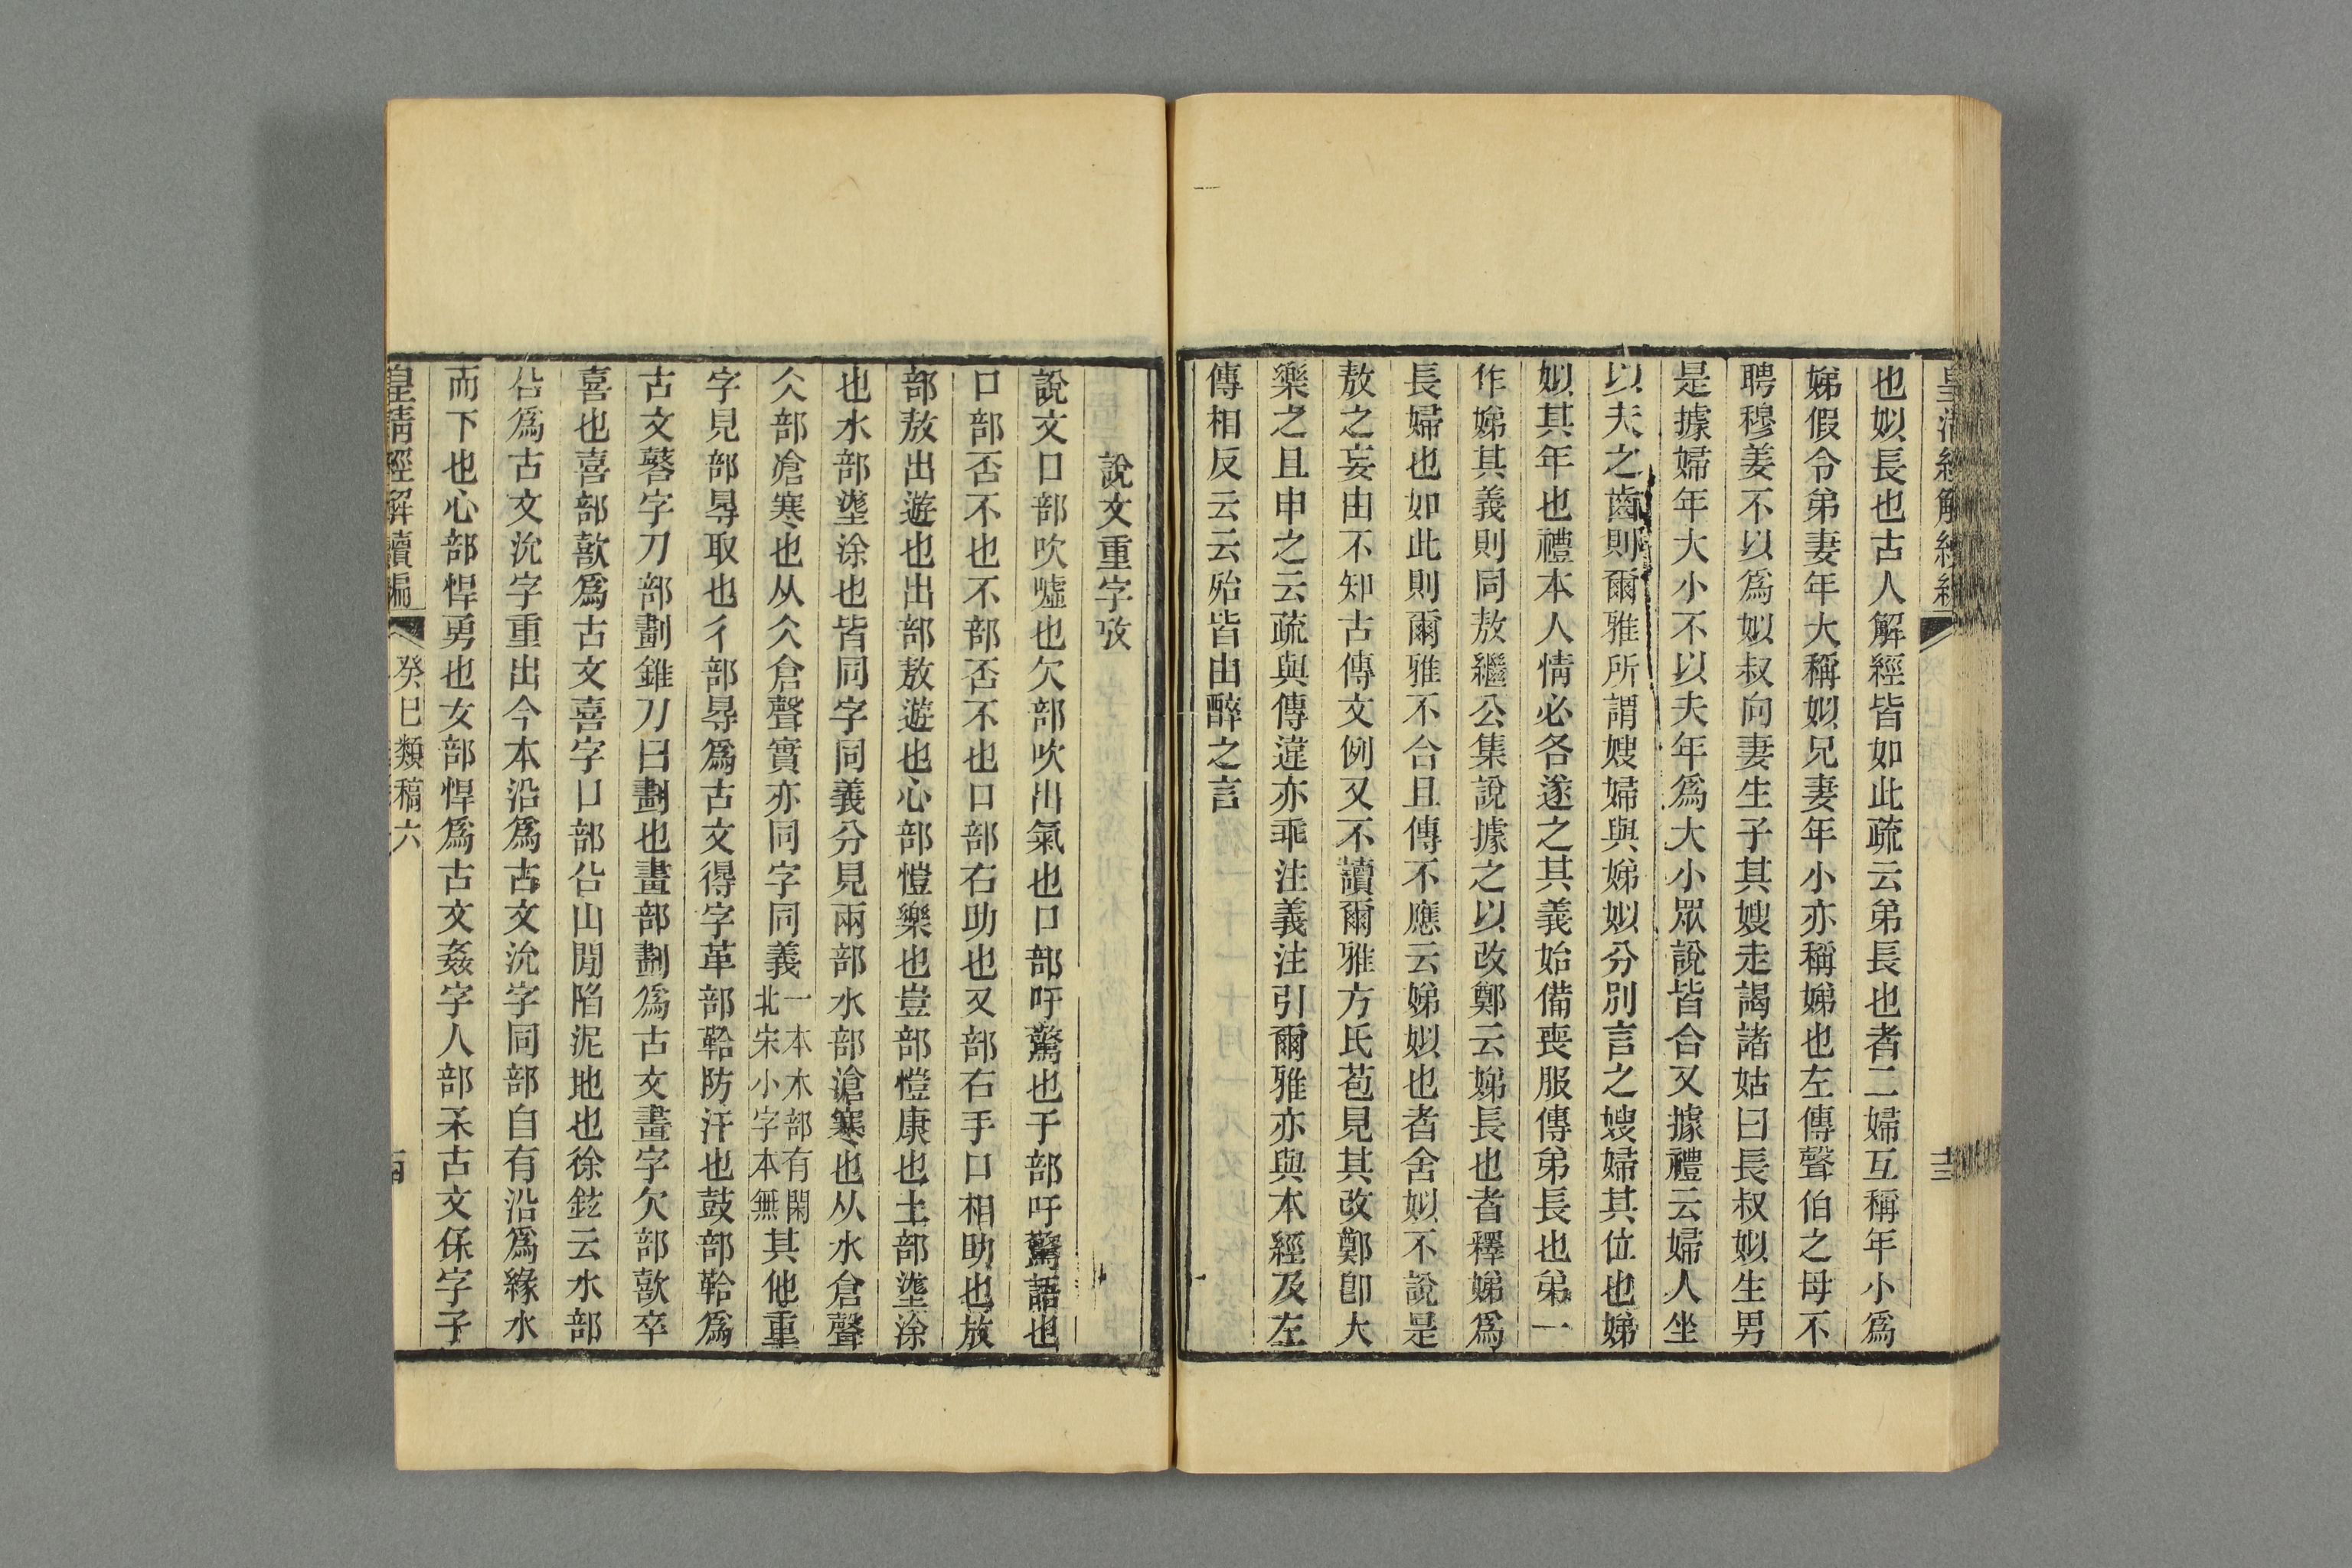 皇清經解續編
十三
也姒長也古人解經皆如此疏云弟長也者二婦互稱年小爲
娣假令弟妻年大稱姒兄妻年小亦稱娣也左傳聲伯之母不
聘穆姜不以爲姒叔向妻生子其嫂走謁諸姑曰長叔姒生男
是據婦年大小不以夫年爲大小眾說皆合又據禮云婦人坐
以夫之齒則爾雅所謂嫂婦與娣姒分別言之嫂婦其位也娣
姒其年也禮本人情必各遂之其義始備喪服傳弟長也弟一
作娣其義則同敖繼公集說據之以改鄭云娣長也者釋娣爲
長婦也如此則爾雅不合且傳不應云娣姒也者舍姒不說是
敖之妄由不知古傳文例又不讀爾雅方氏苞見其改鄭卽大
樂之且申之云疏與傳違亦乖注義注引爾雅亦與本經及左
傳相反云云殆皆由醉之言
說文重字攷
說文口部吹噓也欠部吹出氣也口部吁驚也亏部吁驚語也
口部否不也不部否不也口部右助也又部右手口相助也放
部敖出遊也出部敖遊也心部愷樂也豈部愷康也土部墍涂
也水部墍涂也皆同字同義分見兩部水部滄寒也从水倉聲
仌部凔寒也从仌倉聲實亦同字同義一本木部有閑北宋小字本無其他重
字見部㝵取也彳部㝵爲古文得字革部鞈防汗也鼓部鞈爲
古文鼛字刀部劃錐刀曰劃也畫部劃爲古文畫字欠部歖卒
喜也喜部歖爲古文喜字口部㕣山閒陷泥地也徐鉉云水部
㕣爲古文沇字重出今本沿爲古文沇字同部自有沿爲緣水
而下也心部悍勇也女部悍爲古文姦字人部𠈃古文保字子
皇清經解續編
癸巳類稿六
十四